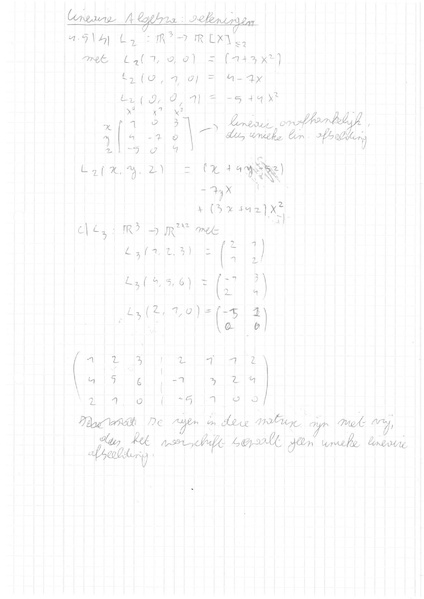 Lineaire Algebra: rekeningen
4.9) b) L₂ : ℝ³ → ℝ[X]≤2
met L₂(1, 0, 0) = (1+3x²)
L₂(0, 1, 0) = 4-7x
L₂(0, 0, 1) = -5+4x²
x⁰ x¹ x²
x [ 1 0 3 ]
y [ 4 -7 0 ] → lineair onafhankelijk,
z [ -5 0 4 ] dus unieke lin. afbeelding
L₂(x, y, z) = (x + 4y - 5z)
- 7yx
+ (3x+4z)x²
c) L₃ : ℝ³ → ℝ²ˣ² met
L₃(1, 2, 3) = ( 2 1
1 2 )
L₃(4, 5, 6) = ( -1 3
2 4 )
L₃(2, 1, 0) = ( -5 1
0 0 )
( 1 2 3 | 2 1 1 2
4 5 6 | -1 3 2 4
2 1 0 | -5 1 0 0 )
De rijen in deze matrix zijn niet vrij,
dus het voorschrift bepaalt geen unieke lineaire
afbeelding.